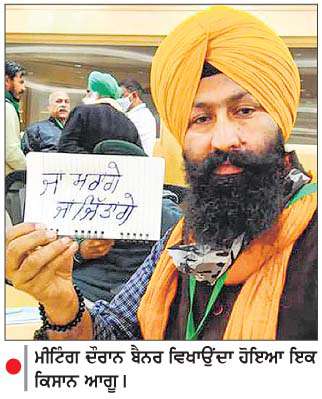 ਜਾਂ ਮਰਾਂਗੇ
ਜਾਂ ਜਿੱਤਾਂਗੇ
ਮੀਟਿੰਗ ਦੌਰਾਨ ਬੈਨਰ ਵਿਖਾਉਂਦਾ ਹੋਇਆ ਇਕ
ਕਿਸਾਨ ਆਗੂ।